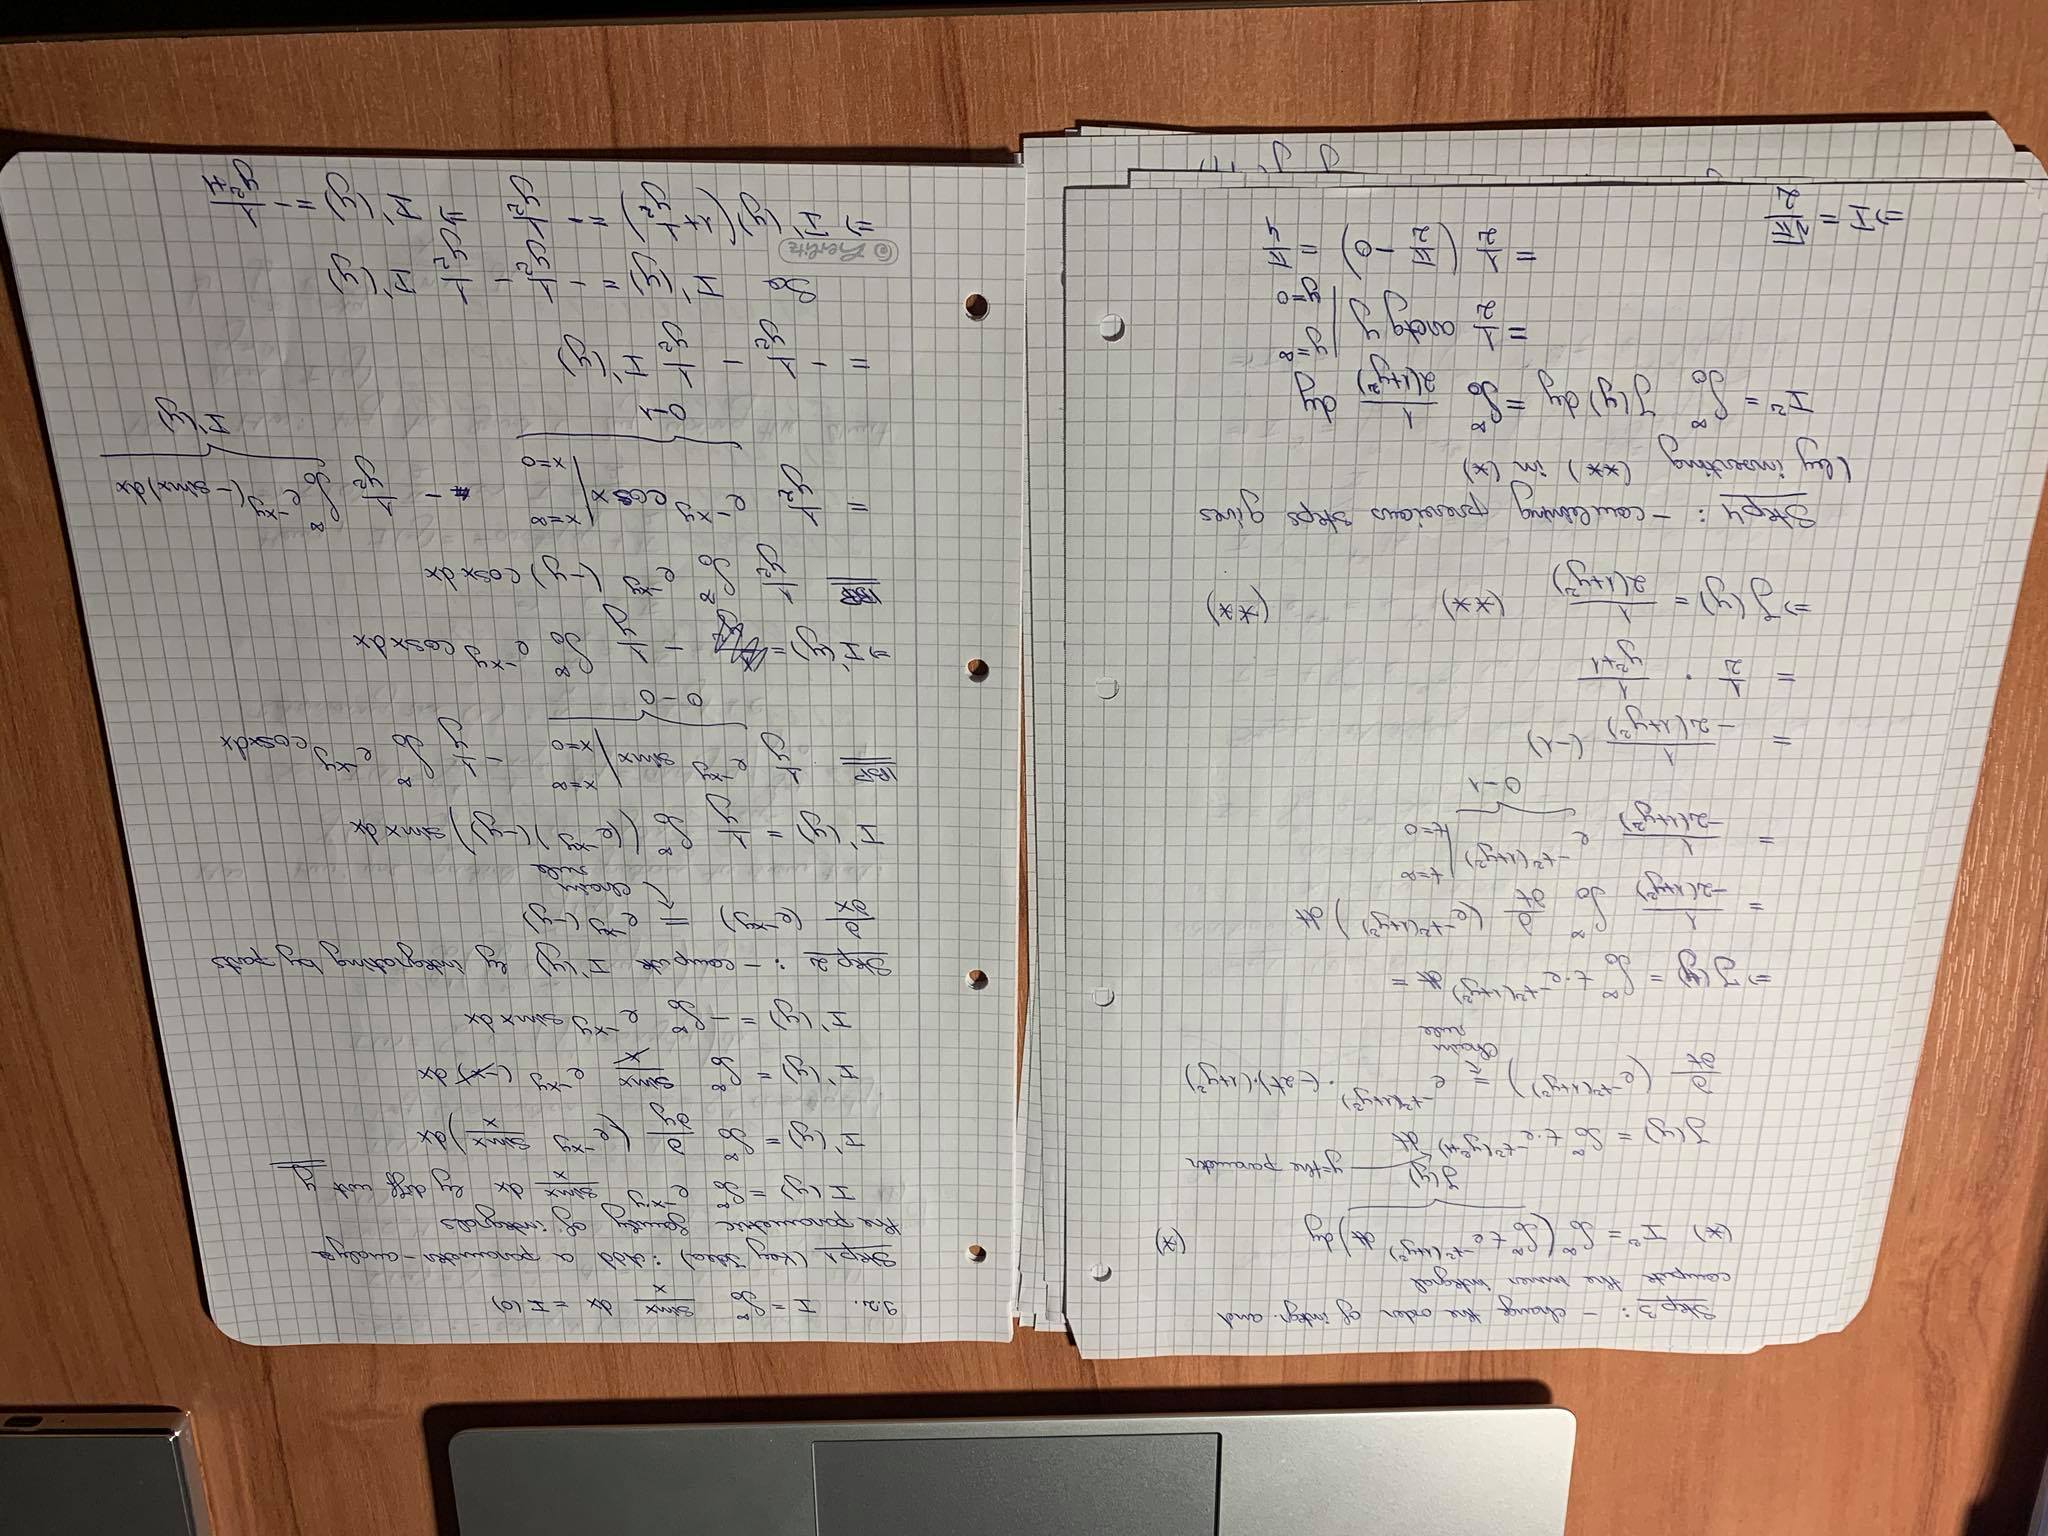 Step 3: - change the order of integr. and
compute the inner integral
(*) I² = ∫₀^∞ (∫₀^∞ t e^{-t²(1+y²)} dt) dy (*)
J(y)
y = the parameter
J(y) = ∫₀^∞ t·e^{-t²(y²+1)} dt
∂/∂t (e^{-t²(1+y²)}) = e^{-t²(1+y²)} · (-2t)·(1+y²)
chain
rule
⇒ J(y) = ∫₀^∞ t·e^{-t²(1+y²)} dt =
= 1/(-2(1+y²)) ∫₀^∞ ∂/∂t (e^{-t²(1+y²)}) dt
= 1/(-2(1+y²)) e^{-t²(1+y²)} |_{t=0}^{t=∞}
0-1
= 1/(-2(1+y²)) (-1)
= 1/2 · 1/(y²+1)
⇒ J(y) = 1/(2(1+y²)) (**) (**)
Step 4: - combining previous steps gives
(by inserting (**) in (*)
I² = ∫₀^∞ J(y) dy = ∫₀^∞ 1/(2(1+y²)) dy
= 1/2 arctg y |_{y=0}^{y=∞}
= 1/2 (π/2 - 0) = π/4
⇒ I = √π/2
9.2. I = ∫₀^∞ sinx/x dx = I(0)
Step 1 (Key Idea): Add a parameter - analyze
the parametric family of integrals
I(y) = ∫₀^∞ e^{-x·y} sinx/x dx by diff wrt y
I'(y) = ∫₀^∞ ∂/∂y (e^{-xy} sinx/x) dx
I'(y) = ∫₀^∞ sinx/x e^{-xy} (-x) dx
I'(y) = -∫₀^∞ e^{-xy} sinx dx
Step 2: - compute I'(y) by integrating by parts
∂/∂x (e^{-xy}) = e^{-xy} (-y)
chain
rule
I'(y) = 1/y ∫₀^∞ ((e^{-xy})(-y)) sinx dx
IBP 1/y e^{-xy} sinx |_{x=0}^{x=∞} - 1/y ∫₀^∞ e^{-xy} cosx dx
0-0
⇒ I'(y) = - 1/y ∫₀^∞ e^{-xy} cosx dx
IBP 1/y² ∫₀^∞ e^{-xy} (-y) cosx dx
= 1/y² e^{-xy} cosx |_{x=0}^{x=∞} - 1/y² ∫₀^∞ e^{-xy} (-sinx) dx
0-1
I'(y)
= - 1/y² - 1/y² I'(y)
So I'(y) = - 1/y² - 1/y² I'(y)
Herlitz
⇒ I'(y) (1 + 1/y²) = - 1/y² ⇒ I'(y) = - 1/(y²+1)